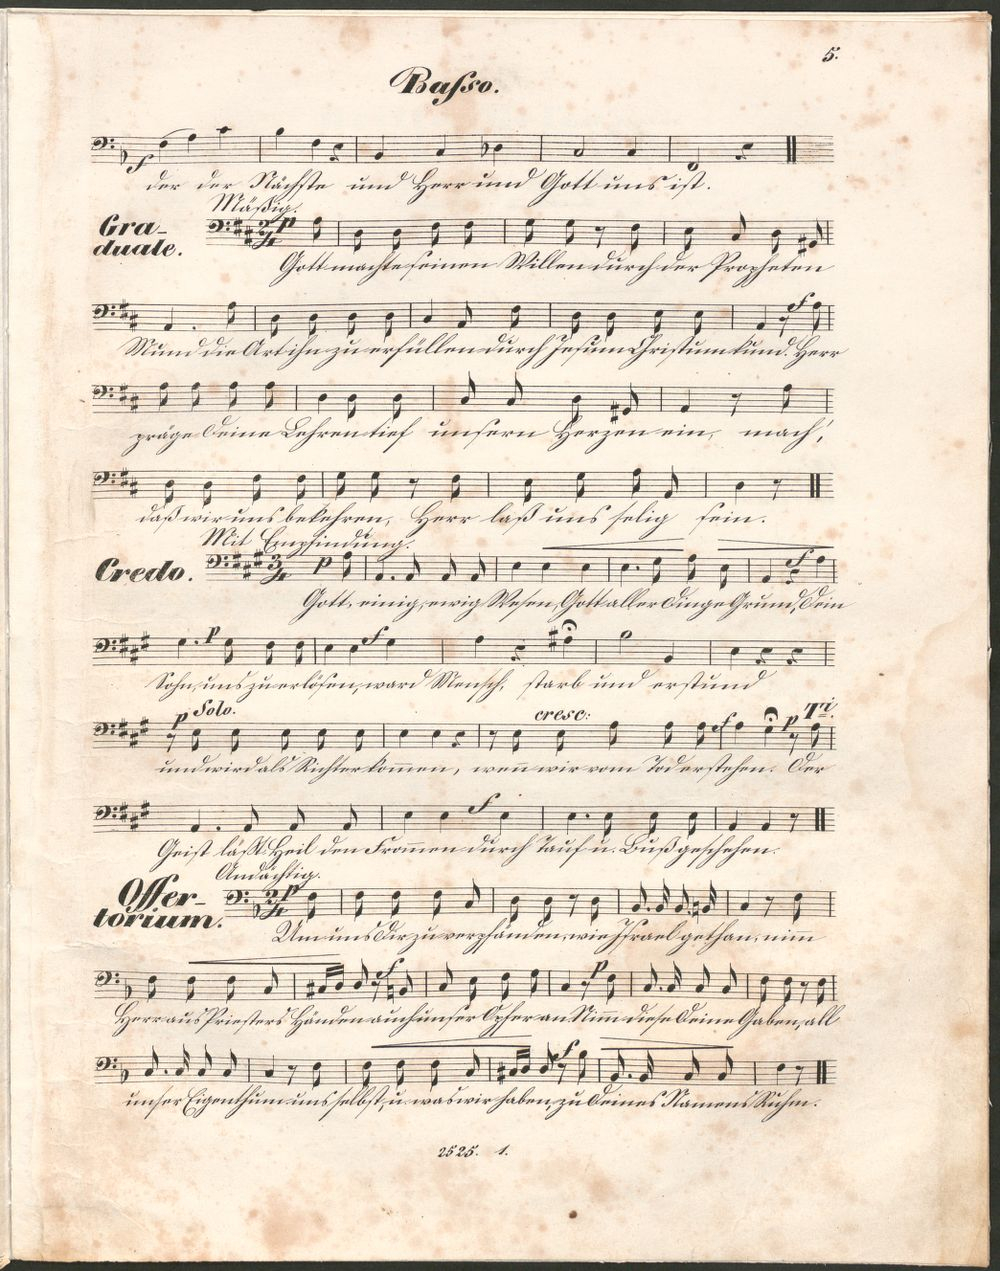 5.
Basso.
f
der der Nächste und Herr und Gott uns ist.
Mäßig.
Gra-
duale.
2/4 p
Gott machte seinen Willen durch der Propheten
f
Mund die Art ihn zu erfüllen durch Jesum Christum kund. Herr
präge deine Lehren tief unsern Herzen ein, mach',
daß wir uns bekehren, Herr laß uns selig sein.
Mit Empfindung.
Credo.
3/4 p f
Gott, einig, ewig Wesen, Gott aller Dinge Grund, Dein
p f
Sohn, uns zu erlösen, ward Mensch, starb und erstund
p Solo. cresc: f p Tti.
und wird als Richter kom̄en, wen̄ wir vom Tod erstehen. Der
f
Geist läßt Heil den From̄en durch Tauf u. Buß geschehen.
Andächtig.
Offer-
torium.
2/4 p
Um uns Dir zu verpfänden, wie Israel gethan, nim̄
f p
Herr aus Priesters Händen auch unser Opfer an. Nim̄ diese deine Gaben, all
f
unser Eigenthum uns selbst, u. was wir haben, zu deines Namens Ruhm.
2525. 1.